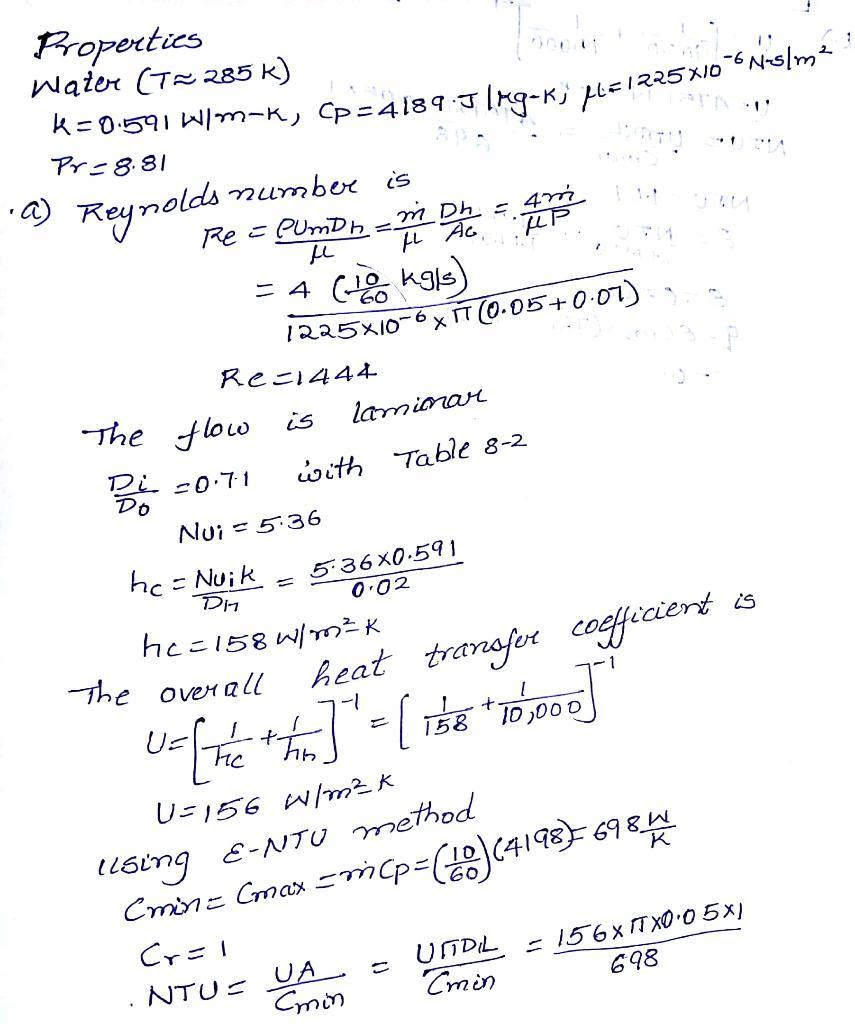 Properties
Water (T≈ 285 K)
K=0.591 W/m-K, Cp=4189.J/kg-K; μ=1225×10⁻⁶ N-s/m²
Pr=8.81
a) Reynolds number is
Re = ρUmDh/μ = ṁ/μ Dh/Ac = 4ṁ/μP
= 4 (10/60 kg/s) / 1225×10⁻⁶ × π (0.05+0.07)
Re=1444
The flow is lamionar
Di/Do =0.71 with Table 8-2
Nui = 5.36
hc = Nuik/Dh = 5.36×0.591/0.02
hc=158 W/m²K
The overall heat transfer coefficient is
U=[1/hc + 1/hh]⁻¹ = [1/158 + 1/10,000]⁻¹
U=156 W/m²K
Using ε-NTU method
Cmin= Cmax =ṁCp=(10/60)(4198)= 698 W/K
Cr=1
NTU= UA/Cmin = UπDiL/Cmin = 156×π×0.05×1/698